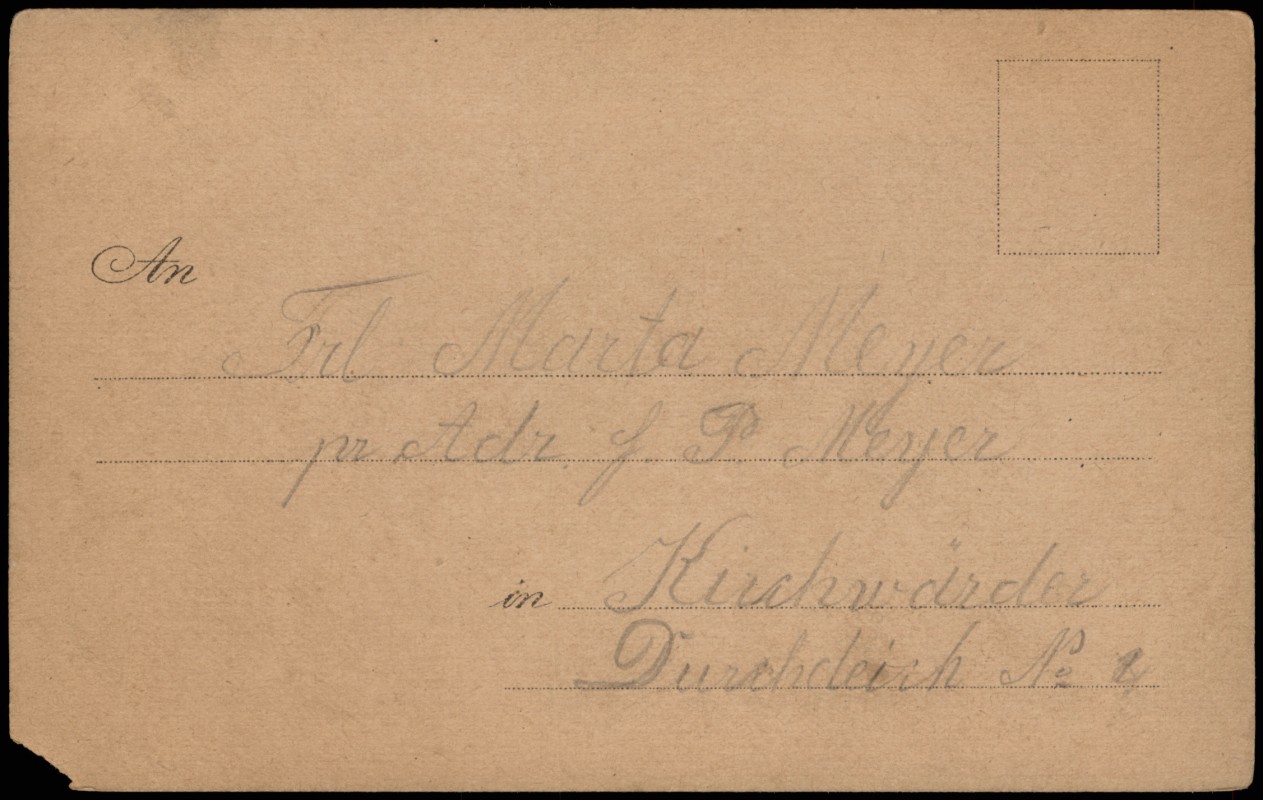 An
Frl Marta Meyer
pr Adr. J. P. Meyer
in Kirchwärder
Durchdeich No